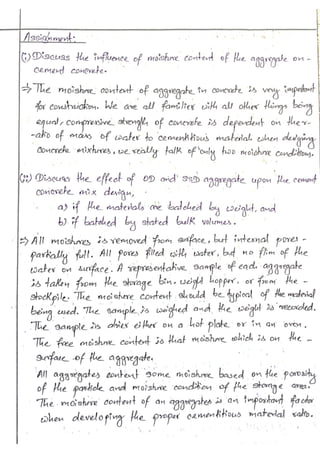 Assignment:
(i) Discuss the influence of moisture content of the aggregate on -
cement concrete.
⇒ The moisture content of aggregate in concrete is very important
for construction. We are all familier with all other things being
equal, compressive strength of concrete is dependent on the r-
-atio of mass of water to cementitious material when designing
Concrete mixtures, we really talk of only two moisture conditions.
(ii) Discuss the effect of OD and SSD aggregate upon the cement
concrete mix design,
a) if the materials are batched by weight, and
b) if batched by stated bulk volumes.
⇒ All moistures is removed from surface, but internal pores -
partially full. All pores filled with water, but no film of the
water on surface. A representative sample of each aggregate
is taken from the storage bin, weight hopper, or from the -
stockpile. The moisture content should be typical of the material
being used. The sample is weighed and the weight is recorded.
The sample is drier either on a hot plate or in an oven.
The free moisture content is that moisture which is on the -
surface of the aggregate.
All aggregates content some moisture based on the porosity
of the particle and moisture condition of the storage area.
The moisture content of an aggregates is an important factor
when developing the proper cementitious material ratio.